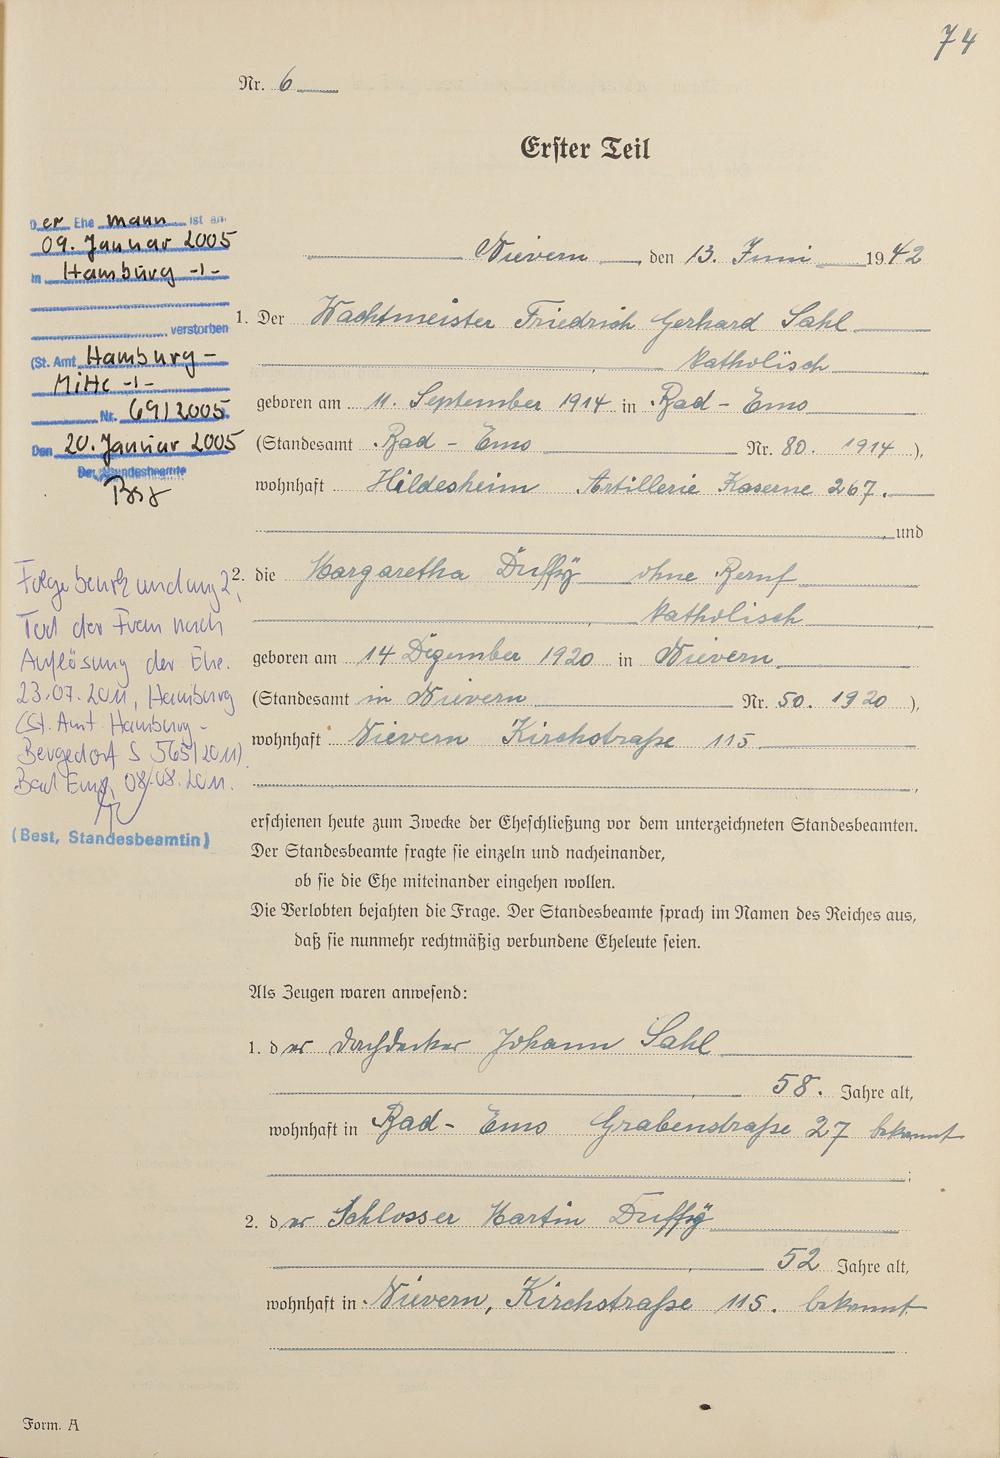 74
Nr. 6
Erster Teil
Der Ehe mann ist am
09. Januar 2005
in Hamburg -/-
verstorben
(St. Amt Hamburg -
Mitte -/-
Nr. 69/2005
Den 20. Januar 2005
Der Standesbeamte
Nievern, den 13. Juni 1942
1. Der Wachtmeister Friedrich Gerhard Sahl
katholisch
geboren am 11. September 1914 in Bad - Ems
(Standesamt Bad - Ems Nr. 80. 1914),
wohnhaft Hildesheim Artillerie Kaserne 267.
, und
2. die Margaretha Duffÿ ohne Beruf
katholisch
geboren am 14 Dezember 1920 in Nievern
(Standesamt in Nievern Nr. 50. 1920),
wohnhaft Nievern Kirchstraße 115
,
Folgebeurkundung 2,
Tod der Frau nach
Auflösung der Ehe.
23.07.2011, Hamburg
(St. Amt Hamburg -
Bergedorf S 565/2011).
Bad Ems, 08.08.2011.
(Best, Standesbeamtin)
erschienen heute zum Zwecke der Eheschließung vor dem unterzeichneten Standesbeamten.
Der Standesbeamte fragte sie einzeln und nacheinander,
ob sie die Ehe miteinander eingehen wollen.
Die Verlobten bejahten die Frage. Der Standesbeamte sprach im Namen des Reiches aus,
daß sie nunmehr rechtmäßig verbundene Eheleute seien.
Als Zeugen waren anwesend:
1. der Dachdecker Johann Sahl
, 58. Jahre alt,
wohnhaft in Bad - Ems Grabenstraße 27 bekannt
;
2. der Schlosser Martin Duffÿ
, 52 Jahre alt,
wohnhaft in Nievern, Kirchstraße 115. bekannt
Form. A